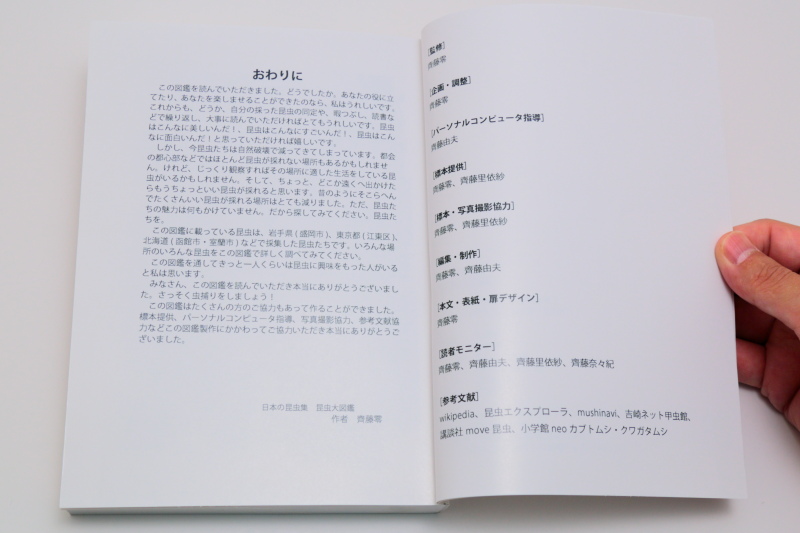 おわりに
この図鑑を読んでいただきました。どうでしたか。あなたの役に立
てたり、あなたを楽しませることができたのなら、私はうれしいです。
これからも、どうか、自分の採った昆虫の同定や、暇つぶし、読書な
どで繰り返し、大事に読んでいただければとてもうれしいです。昆虫
はこんなに美しいんだ！、昆虫はこんなにすごいんだ！、昆虫はこん
なに面白いんだ！と思っていただければ嬉しいです。
しかし、今昆虫たちは自然破壊で減ってきてしまっています。都会
の都心部などではほとんど昆虫が採れない場所もあるかもしれませ
ん。けれど、じっくり観察すればその場所に適した生活をしている昆
虫がいるかもしれません。そして、ちょっと、どこか遠くへ出かけた
らもうちょっといい昆虫が採れると思います。昔のようにそこらへん
でたくさんいい昆虫が採れる場所はとても減りました。ただ、昆虫た
ちの魅力は何もかけていません。だから探してみてください。昆虫た
ちを。
この図鑑に載っている昆虫は、岩手県(盛岡市)、東京都(江東区)、
北海道(函館市・室蘭市)などで採集した昆虫たちです。いろんな場
所のいろんな昆虫をこの図鑑で詳しく調べてみてください。
この図鑑を通してきっと一人くらいは昆虫に興味をもった人がいる
と私は思います。
みなさん、この図鑑を読んでいただき本当にありがとうございまし
た。さっそく虫捕りをしましょう！
この図鑑はたくさんの方のご協力もあって作ることができました。
標本提供、パーソナルコンピュータ指導、写真撮影協力、参考文献協
力などこの図鑑製作にかかわってご協力いただき本当にありがとうご
ざいました。
日本の昆虫集　昆虫大図鑑
作者　齊藤零
[監修]
齊藤零
[企画・調整]
齊藤零
[パーソナルコンピュータ指導]
齊藤由夫
[標本提供]
齊藤零、齊藤里依紗
[標本・写真撮影協力]
齊藤零、齊藤里依紗
[編集・制作]
齊藤零、齊藤由夫
[本文・表紙・扉デザイン]
齊藤零
[読者モニター]
齊藤零、齊藤由夫、齊藤里依紗、齊藤奈々紀
[参考文献]
wikipedia、昆虫エクスプローラ、mushinavi、吉崎ネット甲虫館、
講談社 move 昆虫、小学館 neo カブトムシ・クワガタムシ